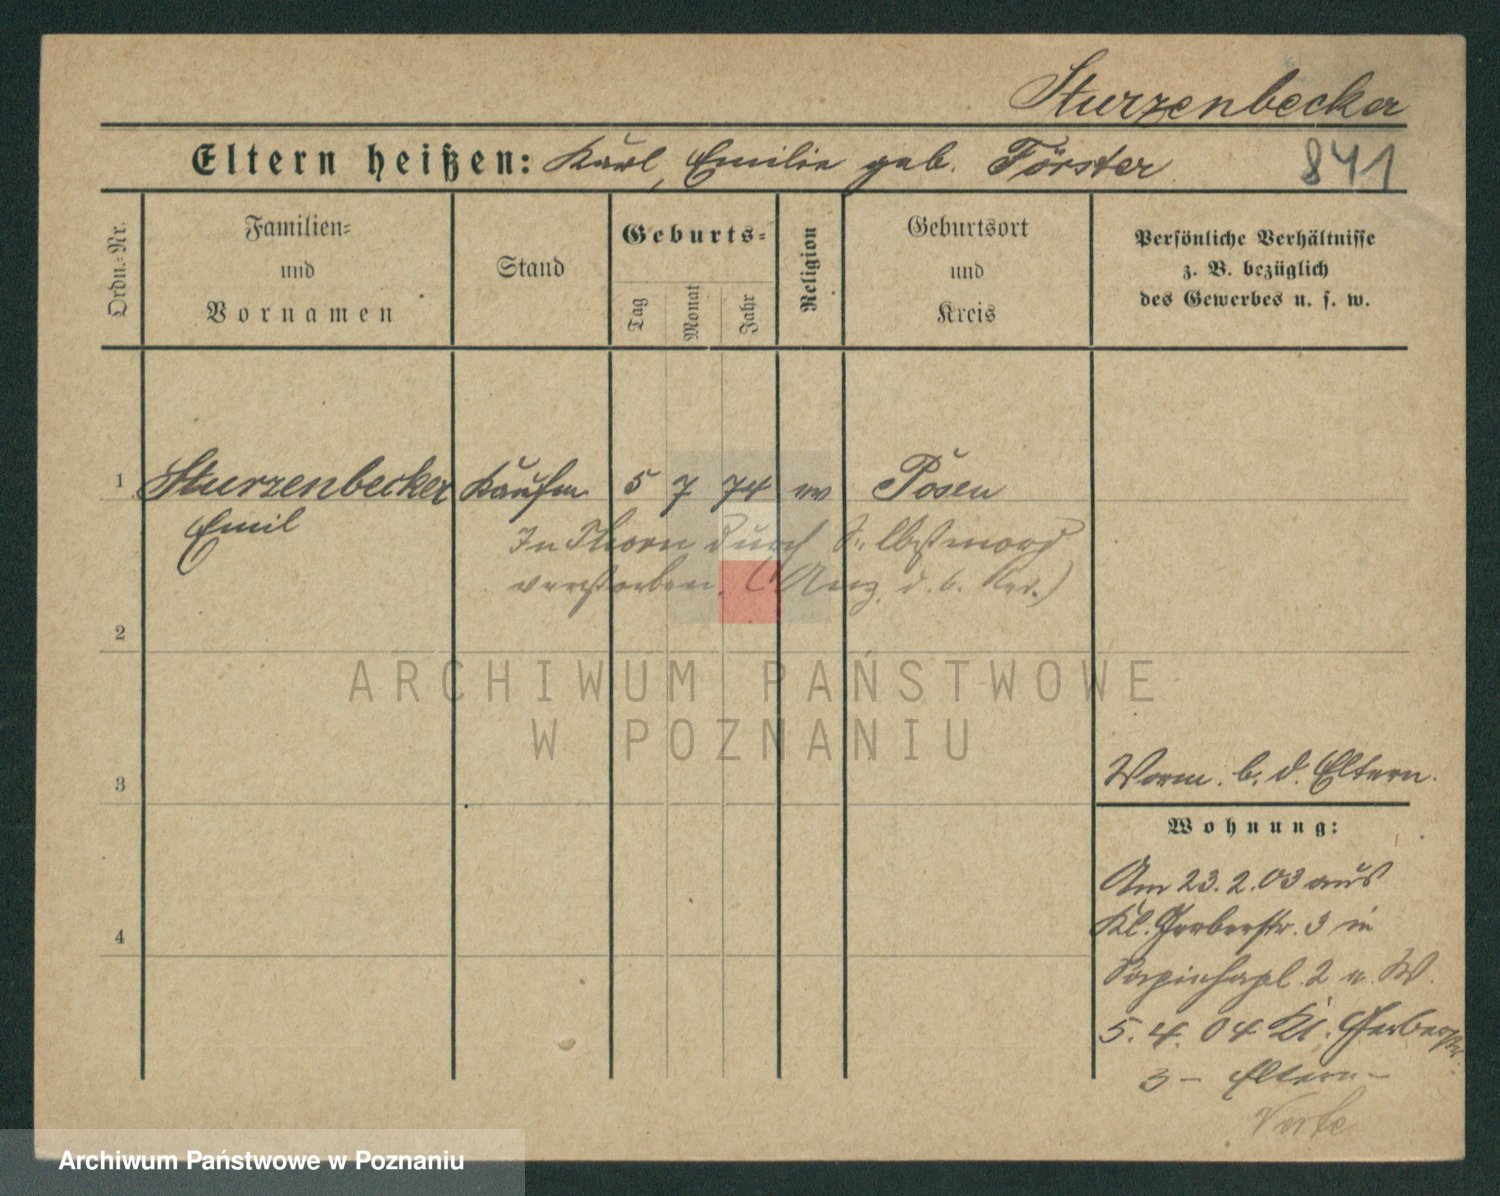 Sturzenbecker
Eltern heißen: Karl, Emilie geb. Förster
841
Ordn.=Nr.
Familien=
und
Vornamen
Stand
Geburts=
Tag
Monat
Jahr
Religion
Geburtsort
und
Kreis
Persönliche Verhältnisse
z. B. bezüglich
des Gewerbes u. s. w.
1 Sturzenbecker Kaufm. 5 7 74 ev Posen
Emil
In Thorn durch Selbstmord
verstorben. (Anz. d. b.
2
ARCHIWUM PAŃSTWOWE
W POZNANIU
3
Worm. b. d. Eltern.
Wohnung:
Am 23.2.03 aus
Kl. Gerberstr. 3 in
4
Sapiehapl. 2 n. W.
5.4.04 Kl. Gerberstr
3 - Eltern -
Archiwum Państwowe w Poznaniu